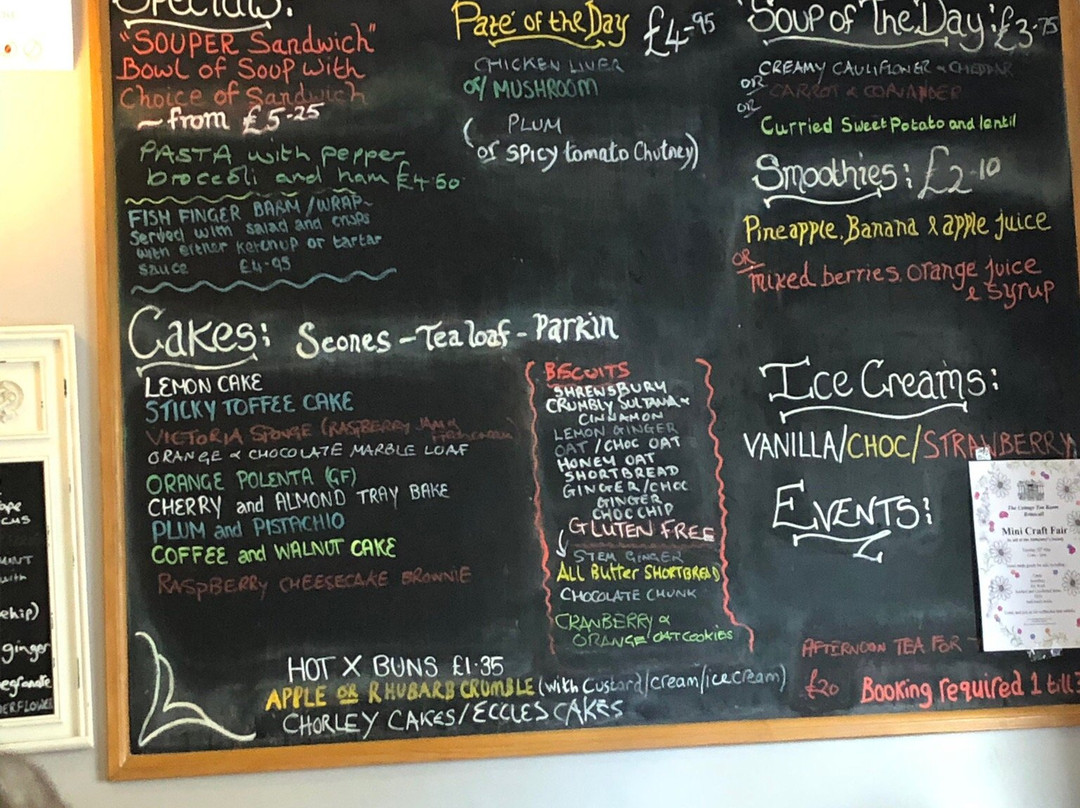 Specials:
"SOUPER Sandwich"
Bowl of Soup with
Choice of Sandwich
~ from £5.25
PASTA with pepper
broccoli and ham £4.50
FISH FINGER BARM/WRAP~
Served with salad and crisps
with either ketchup or tartar
sauce £4.95
Paté of the Day £4.95
CHICKEN LIVER
or MUSHROOM
(PLUM
or SPICY tomato Chutney)
Soup of The Day: £3.75
CREAMY CAULIFLOWER & CHEDDAR
OR CARROT & CORIANDER
OR
Curried Sweet Potato and lentil
Smoothies: £2.10
Pineapple, Banana & apple juice
OR
mixed berries, orange juice
& syrup
Cakes: Scones - Tea loaf - Parkin
LEMON CAKE
STICKY TOFFEE CAKE
VICTORIA SPONGE (RASPBERRY JAM &
ORANGE & CHOCOLATE MARBLE LOAF
ORANGE POLENTA (GF)
CHERRY and ALMOND TRAY BAKE
PLUM and PISTACHIO
COFFEE and WALNUT CAKE
RASPBERRY CHEESECAKE BROWNIE
BISCUITS
SHREWSBURY
CRUMBLY SULTANA &
CINNAMON
LEMON GINGER
OAT/CHOC OAT
HONEY OAT
SHORTBREAD
GINGER/CHOC
GINGER
CHOC CHIP
GLUTEN FREE
STEM GINGER
ALL Butter SHORTBREAD
CHOCOLATE CHUNK
CRANBERRY &
ORANGE OAT COOKIES
Ice Creams:
VANILLA/CHOC/STRAWBERRY
EVENTS:
Mini Craft Fair
HOT X BUNS £1.35
APPLE OR RHUBARB CRUMBLE (with Custard/cream/icecream)
CHORLEY CAKES/ECCLES CAKES
AFTERNOON TEA FOR
£20 Booking required 1 till
with
ginger